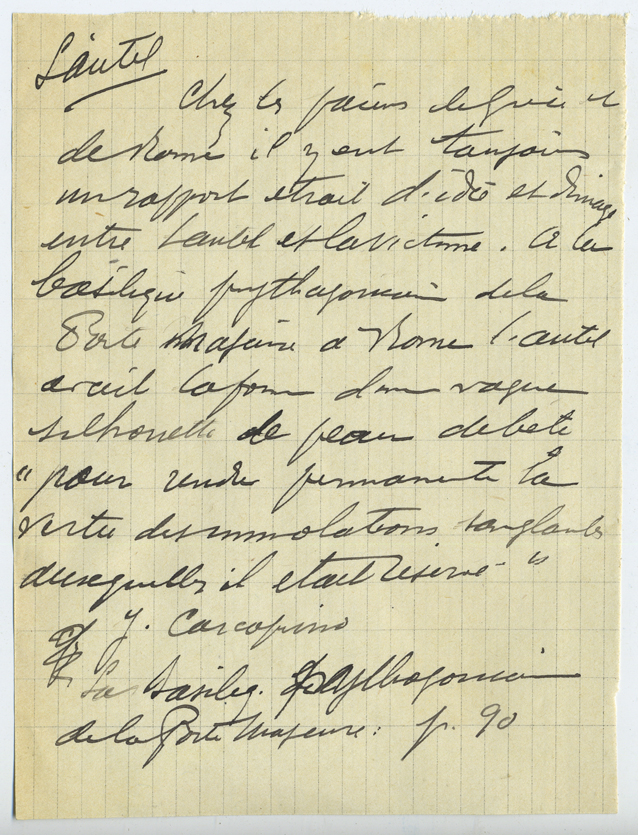 L'autel
Chez les païens de Grèce et
de Rome il y eut toujours
un rapport etroit d'idée et d'image
entre l'autel et la victime. A la
basilique pythagoricienne de la
Porte Majeure a Rome l'autel
avait la forme d'une vague
silhouette de peau de bete
"pour rendre permanente la
vertu des immolations sanglantes
auxquelles il etait réservé"
J. Carcopino
La Basiliq. Pythagoricienne
de la Porte Majeure: p. 90